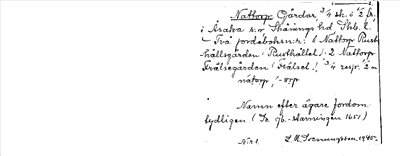 Nattorp Gårdar, 3/4 sk. & 1/2 fr.
i Åsaka s:n Skånings hd Skb. l.
- Två jordebokn:r: 1 Nattorp Rust-
hållsgården (Rusthållet). 2 Nattorp
Frälsegården (Frälset.), 3/4 resp. 1/2 m
nátorp, -ɔrp
Namn efter ägare fordom
tydligen (Se jb. 1651)
1945.